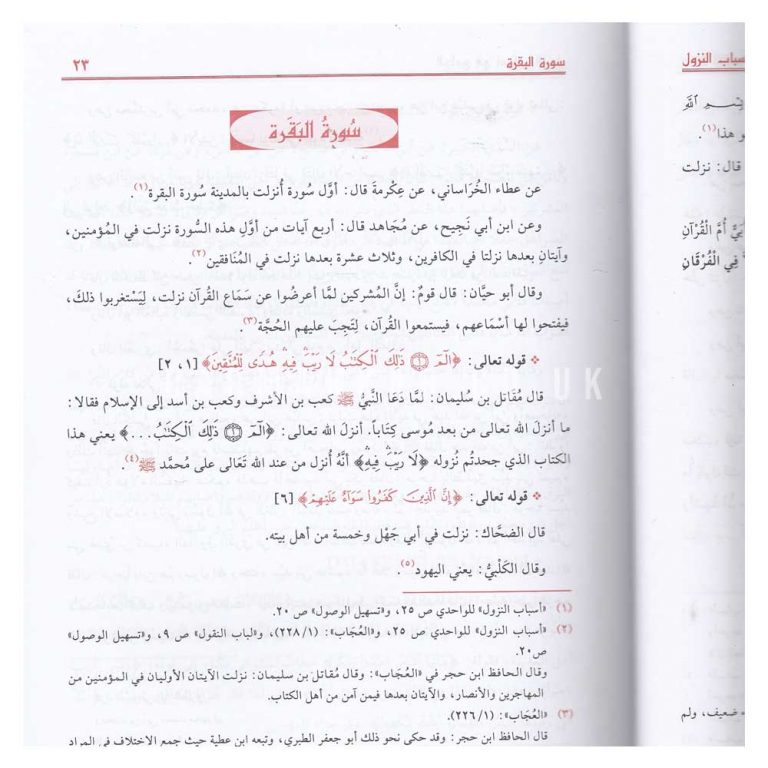 سورة البقرة
٢٣
سُورَةُ البَقَرَة
عن عطاء الخُرَاساني، عن عِكْرمةَ قال: أوَّل سُورة أُنزلت بالمدينة سُورة البقرة(١).
وعن ابن أبي نَجيح، عن مُجَاهد قال: أربع آيات من أوَّلِ هذه السُّورة نزلت في المُؤمنين،
وآيتانِ بعدها نزلتا في الكافرين، وثلاث عشرة بعدها نزلت في المُنَافقين(٢).
وقال أبو حيَّان: قال قومٌ: إنَّ المُشركين لمَّا أعرضُوا عن سَمَاع القُرآن نزلت، لِيَسْتغربوا ذلكَ،
فيفتحوا لها أسْمَاعهم، فيستمعوا القُرآن، لِتَجِبَ عليهم الحُجَّة(٣).
❖ قوله تعالى: ﴿الٓمٓ ۝١ ذَٰلِكَ ٱلْكِتَٰبُ لَا رَيْبَۛ فِيهِۛ هُدًى لِّلْمُتَّقِينَ﴾ [١، ٢]
قال مُقَاتل بن سُليمان: لمَّا دَعَا النَّبيُّ ﷺ كعب بن الأشرف وكعب بن أسد إلى الإسلام فقالا:
ما أنزلَ الله تعالى من بعد مُوسى كِتَاباً. أنزل الله تعالى: ﴿الٓمٓ ۝١ ذَٰلِكَ ٱلْكِتَٰبُ...﴾ يعني هذا
الكتاب الذي جحدتُم نُزوله ﴿لَا رَيْبَۛ فِيهِۛ﴾ أنَّهُ أُنزل من عند الله تَعَالى على مُحمَّد ﷺ(٤).
❖ قوله تعالى: ﴿إِنَّ ٱلَّذِينَ كَفَرُوا۟ سَوَآءٌ عَلَيْهِمْ﴾ [٦]
قال الضحَّاك: نزلت في أبي جَهْل وخمسة من أهل بيته.
وقال الكَلْبيُّ: يعني اليهود(٥).
(١) «أسباب النزول» للواحدي ص ٢٥، و«تسهيل الوصول» ص ٢٠.
(٢) «أسباب النزول» للواحدي ص ٢٥، و«العُجَاب»: (٢٢٨/١)، و«لباب النقول» ص ٩، و«تسهيل الوصول»
ص٢٠.
وقال الحافظ ابن حجر في «العُجَاب»: وقال مُقاتل بن سليمان: نزلت الآيتان الأوليان في المؤمنين من
المهاجرين والأنصار، والآيتان بعدها فيمن آمن من أهل الكتاب.
(٣) «العُجَاب»: (٢٢٦/١).
قال الحافظ ابن حجر: وقد حكى نحو ذلك أبو جعفر الطبري، وتبعه ابن عطية حيث جمع الاختلاف في المراد
سباب النزول
بِسْمِ اللَّهِ
و هذا(١).
قال: نزلت
أُمَّ الْقُرْآنِ
فِي الْفُرْقَانِ
ضعيف، ولم
UK